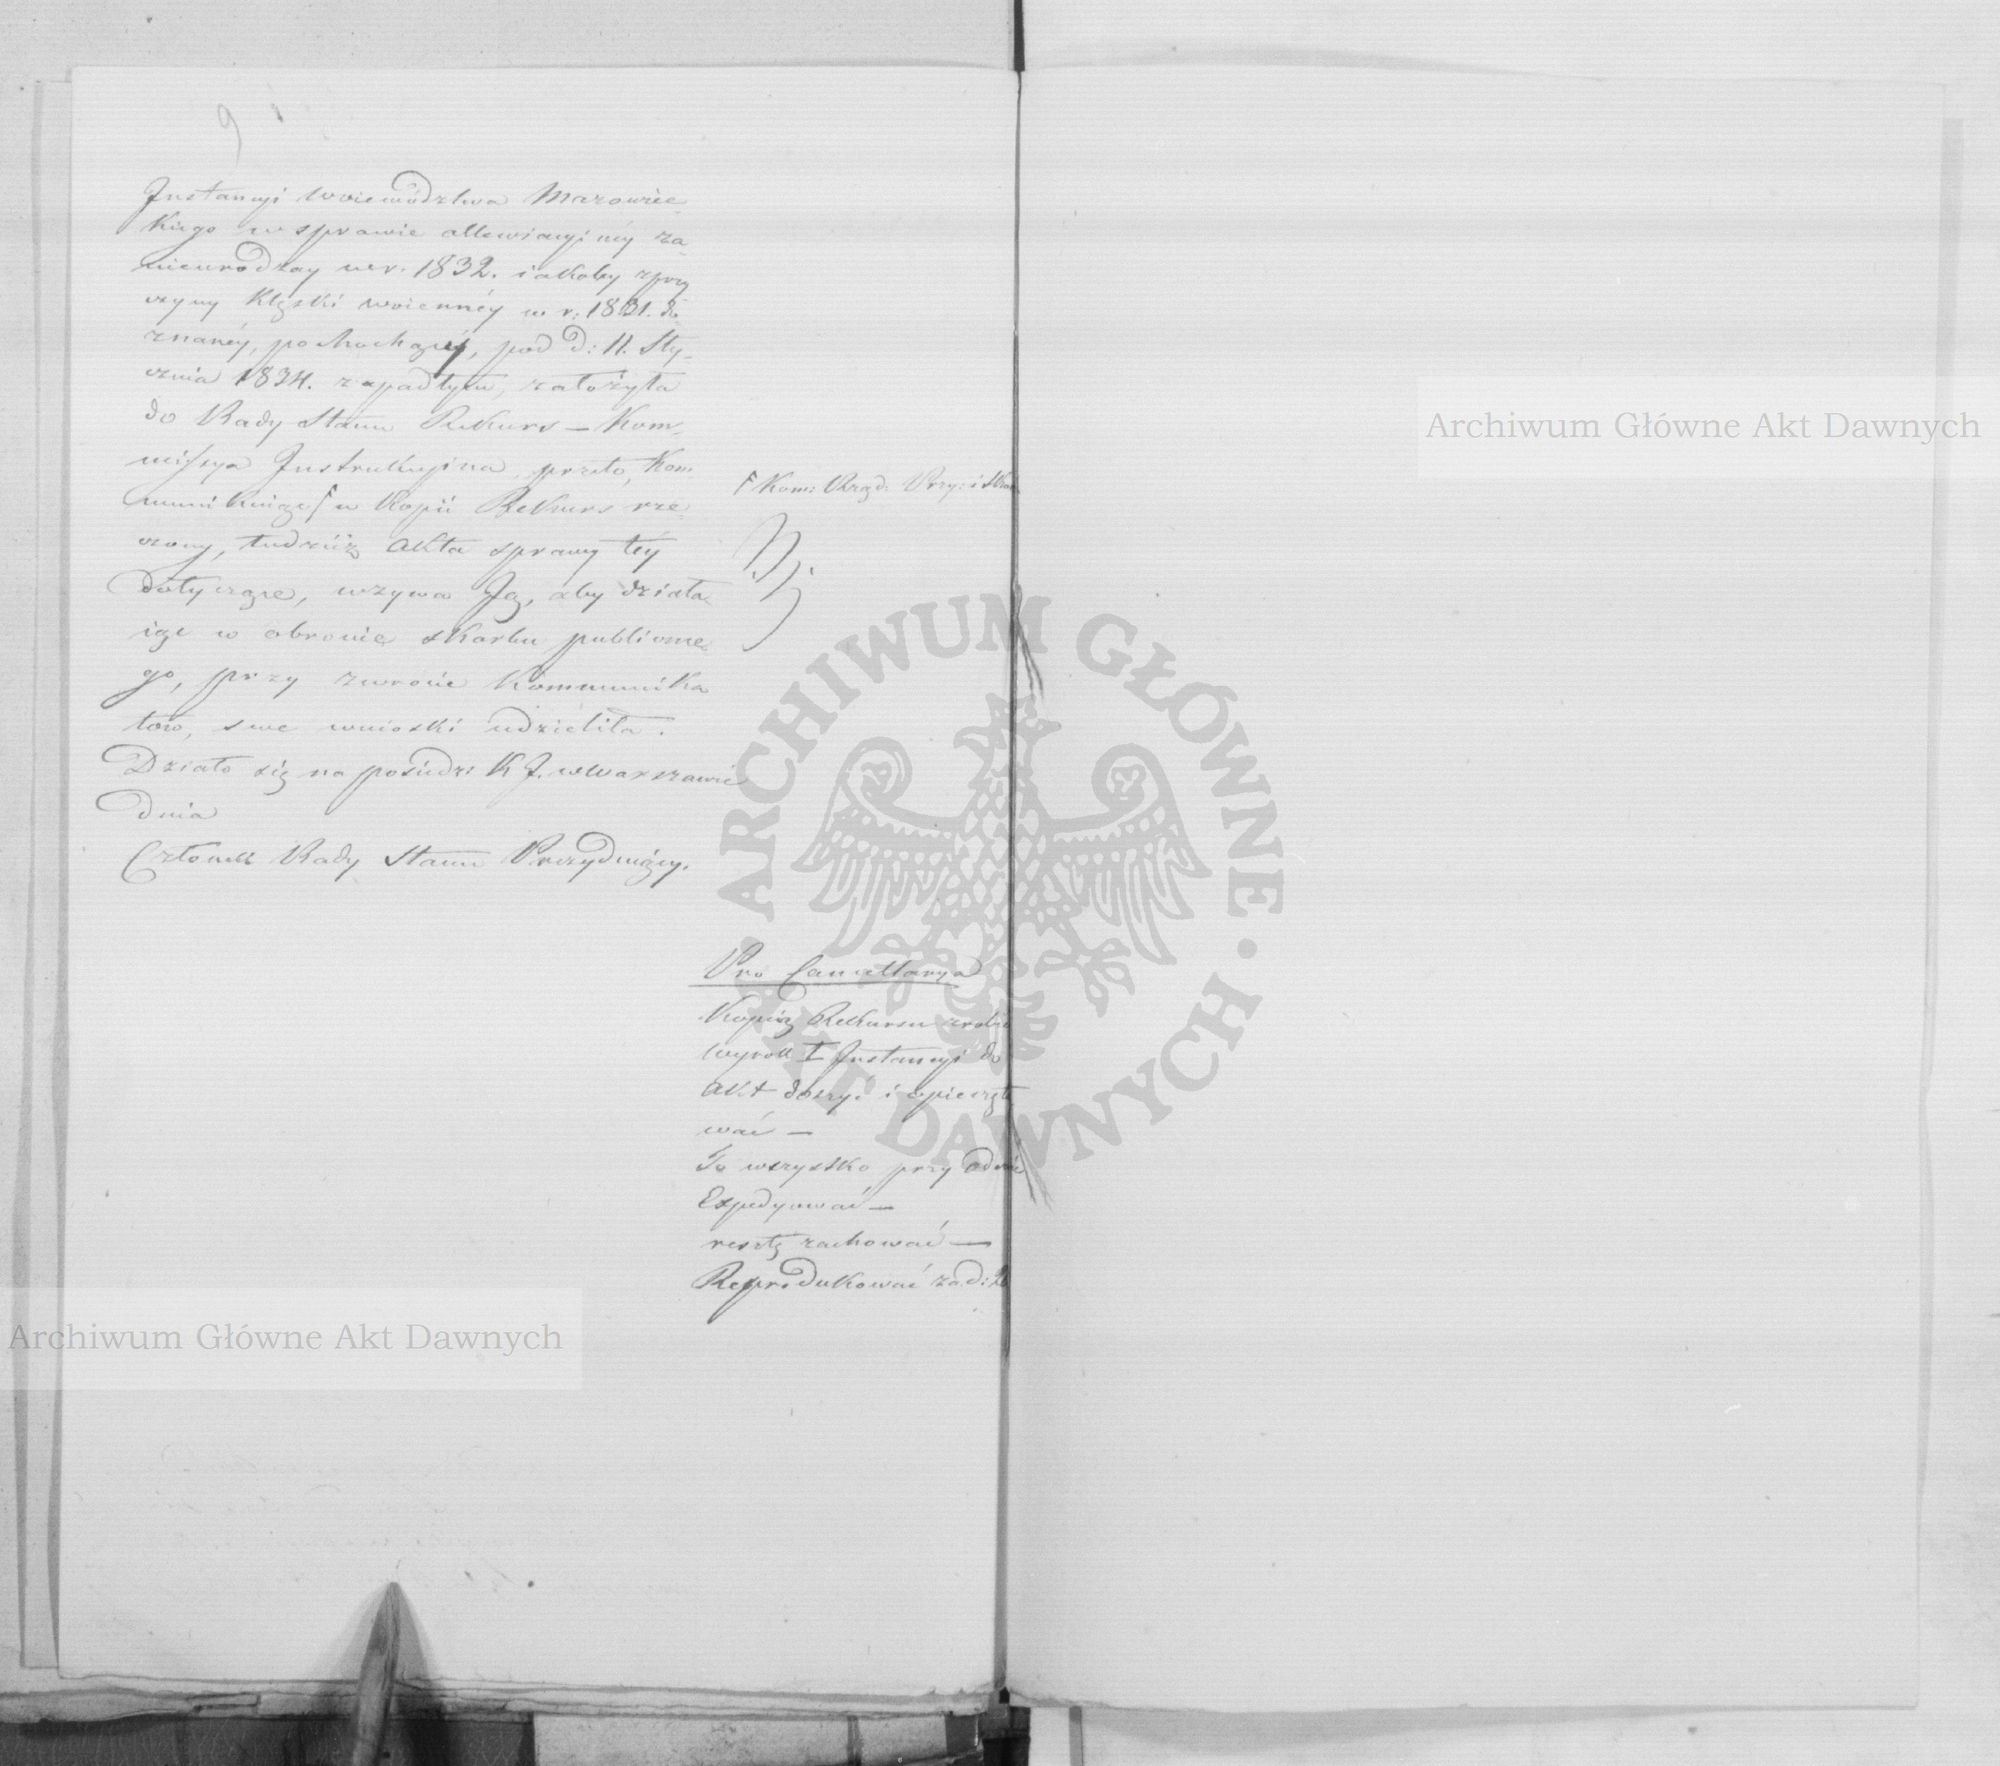 9
Instancyi Woiewództwa Mazowiec
kiego w sprawie allewiacyinéy za
nieurodzay w r. 1832. iakoby z przy
czyny klęski woiennéy w r: 1831. do
znanéy, pochodzący, pod d: 11. Sty-
cznia 1834. zapadłym, założyła
do Rady Stanu Rekurs – Kom-
missya Instrukcyina przeto, Kom-
munikuiąc w Kopii Rekurs rze
czony, tudzież akta sprawy téy
dotyczące, wzywa Ją, aby działa-
iąc w obronie skarbu publiczne-
go, przy zwrocie Kommunika
tów, swe wnioski udzieliła.
Działo się na posiedz: K J. w Warszawie
dnia
Członek Rady Stanu Prezyduiący.
Kom: Rząd: Przy: i Skar
Pro Cancellarya
Kopią Rekursu zrobić
Wyrok I Instancyi do
akt doszyć i opieczęto
wać –
To wszystko przy
Expedyować –
resztę zachować –
Reprodukować za d:
Archiwum Główne Akt Dawnych
Archiwum Główne Akt Dawnych
ARCHIWUM GŁÓWNE AKT DAWNYCH